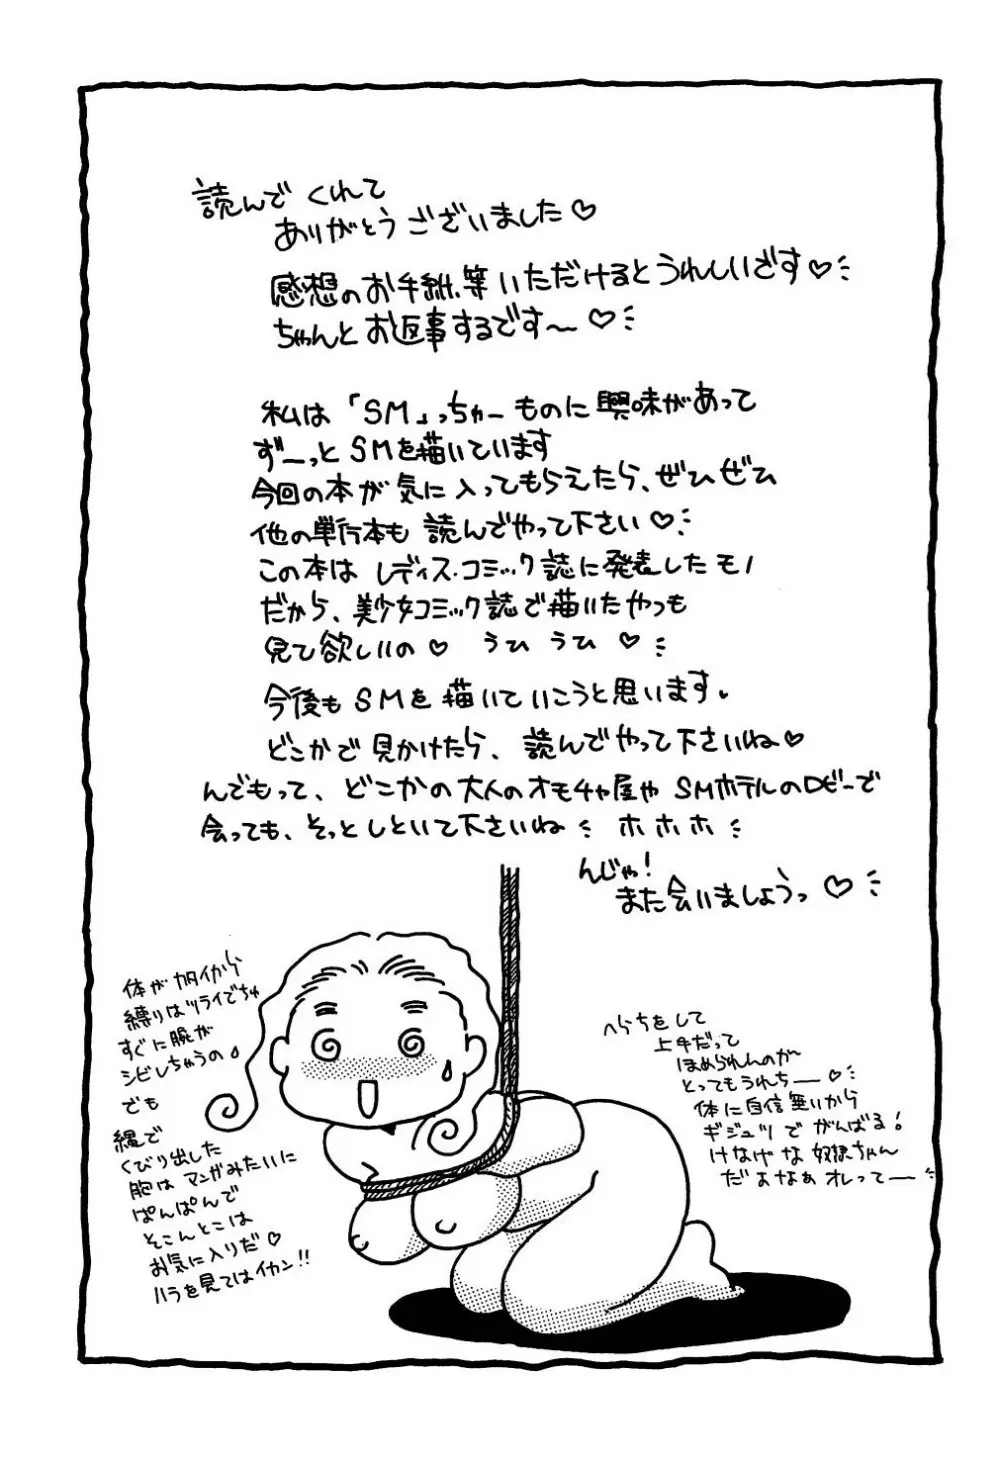 読んでくれて
ありがとうございました♡
感想のお手紙、等いただけるとうれしいざす♡
ちゃんとお返事するです〜♡
私は「SM」っちゃーものに興味があって
ず〜っとSMを描いています
今回の本が気に入ってもらえたら、ぜひぜひ
他の単行本も読んでやって下さい♡
この本はレディス・コミック誌に発表したモノ
だから、美少女コミック誌で描いたやつも
見て欲しいの♡ うひ うひ ♡
今後もSMを描いていこうと思います。
どこかで見かけたら、読んでやって下さいね♡
んでもって、どこかの大人のオモチャ屋やSMホテルのロビーで
会っても、そっとしといて下さいね ホホホ
んじゃ!
また会いましょうっ♡
体がカタイから
縛りはツライでちゅ
すぐに腕が
シビレちゃうの。
でも
縄で
くびり出した
胸はマンガみたいに
ぱんぱんで
そこんとこは
お気に入りだ♡
ハラを見てはイカン!!
へらちをして
上手だって
ほめられんのが〜
とってもうれち〜♡
体に自信無いから
ギジュツでがんばる!
けなげな奴隷ちゃん
だよなぁオレって〜